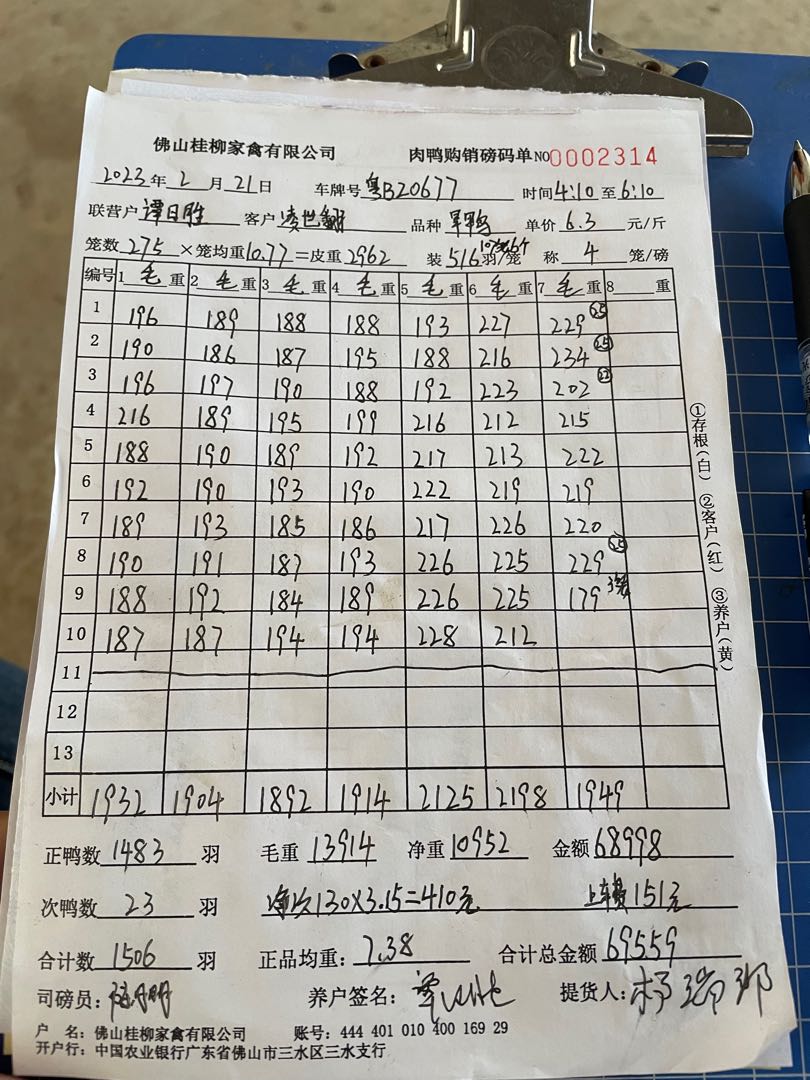 佛山桂柳家禽有限公司 肉鸭购销磅码单 NO 0002314
2023年 2 月 21日 车牌号 粤B20677 时间 4:10 至 6:10
联营户 谭日胜 客户 品种 单价 6.3 元/斤
笼数 275 ×笼均重 10.77 =皮重 2962 装 羽/笼 称 4 笼/磅
编号 1 毛 重 2 毛 重 3 毛 重 4 毛 重 5 毛 重 6 毛 重 7 毛 重 8 重
1 196 189 188 188 193 227 229
2 190 186 187 195 188 216 234
3 196 197 190 188 192 223 202
4 216 189 195 199 216 212 215
5 188 190 189 192 217 213 222
6 192 190 193 190 222 219 219
7 189 193 185 186 217 226 220
8 190 191 187 193 226 225 229
9 188 192 184 189 226 225 179
10 187 187 194 194 228 212
11
12
13
小计 1932 1904 1892 1914 2125 2198 1949
正鸭数 1483 羽 毛重 13914 净重 10952 金额 68998
次鸭数 23 羽 净次130×3.15=410元 上车费151元
合计数 1506 羽 正品均重: 7.38 合计总金额 69559
司磅员: 养户签名: 提货人:
户 名: 佛山桂柳家禽有限公司 账号: 444 401 010 400 169 29
开户行: 中国农业银行广东省佛山市三水区三水支行
①存根(白) ②客户(红) ③养户(黄)